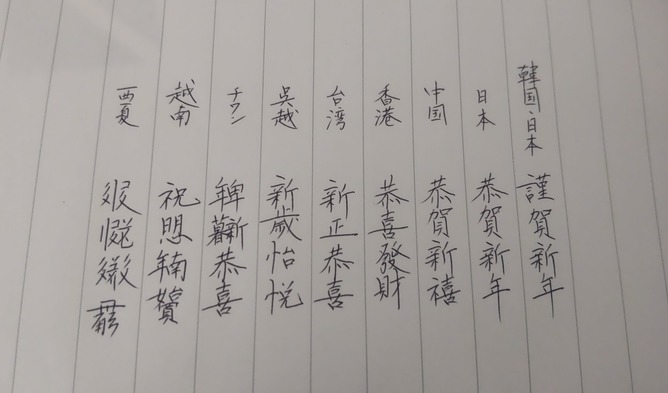 韓国・日本 謹賀新年
日本 恭賀新年
中国 恭賀新禧
香港 恭喜發財
台湾 新正恭喜
呉越 新歳怡悦
チワン 恭喜
越南 祝
西夏